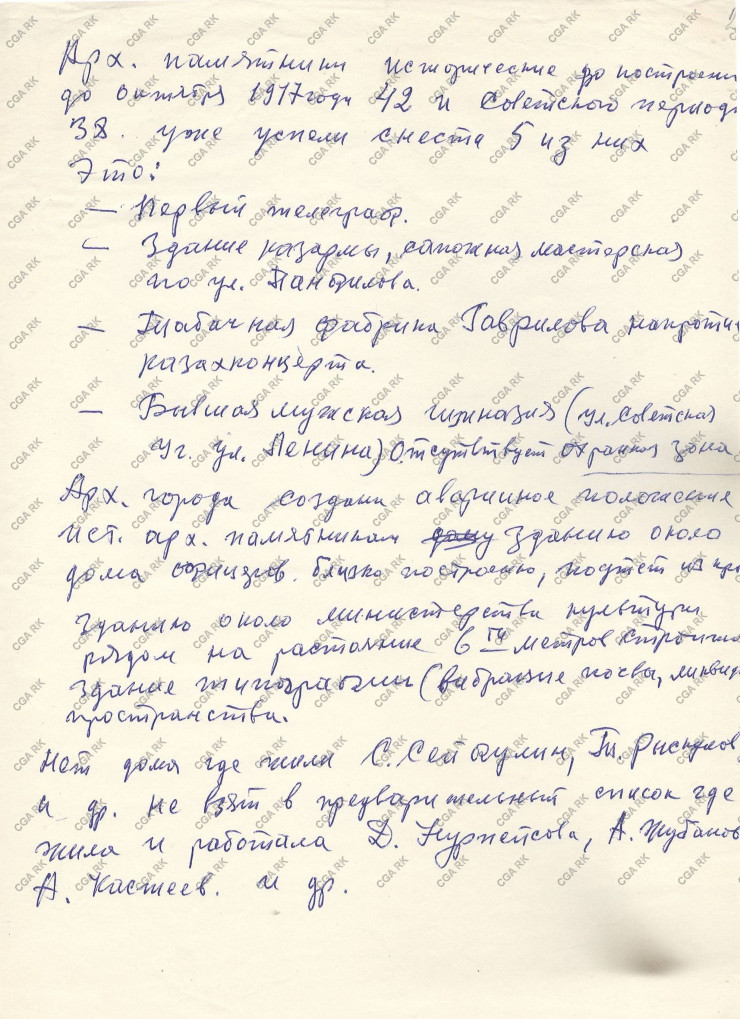 2
Арх. памятники исторические до построени
до октября 1917 года 42 и Советского период
38. уже успели снести 5 из них
Это:
— Первый телеграф.
— Здание казармы, сапожная мастерская
по ул. Панфилова.
— Табачная фабрика Гаврилова напротив
казахконцерта.
— Бывшая мужская гимназия (ул. Советская
уг. ул. Ленина) Отсутствует охранная зона
Арх. города создана аварийное положение
ист. арх. памятникам зданию около
дома офицеров. близко построено,
Зданию около министерства культуры
рядом на растояние 6 ти метров
здание типографии (вибрацие почвы, ликвид
пространства.
Нет дома где жили С. Сейфулин, Т. Рыскулов,
и др. не взят в предварительный список где
жила и работала Д. Нурпеисова, А. Жубанов
А. Кастеев. и др.